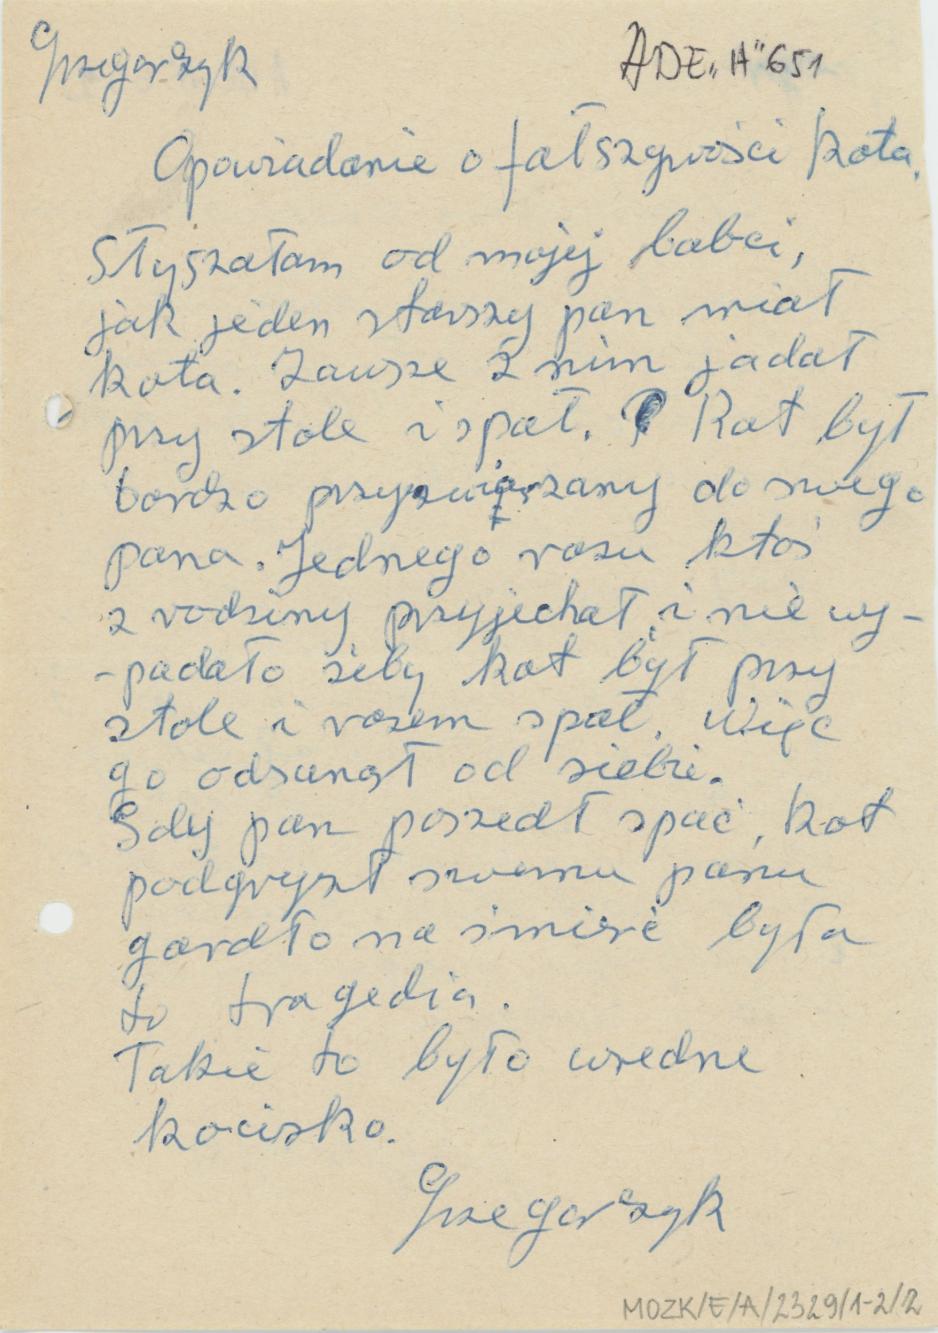 Grzegorzyk
ADE „H" 651
Opowiadanie o fałszywości kota.
Słyszałam od mojej babci,
jak jeden starszy pan miał
kota. Zawsze z nim jadał
przy stole i spał. Kot był
bardzo przyzwiązany do swego
pana. Jednego razu ktoś
z rodziny przyjechał i nie wy-
-padało żeby kot był przy
stole i razem spał. Więc
go odsunął od siebie.
Gdy pan poszedł spać, kot
podgryzł swemu panu
gardło na śmierć była
to tragedia.
Takie to było wredne
kocisko.
Grzegorzyk
MOZK/E/A/2329/1-2/2